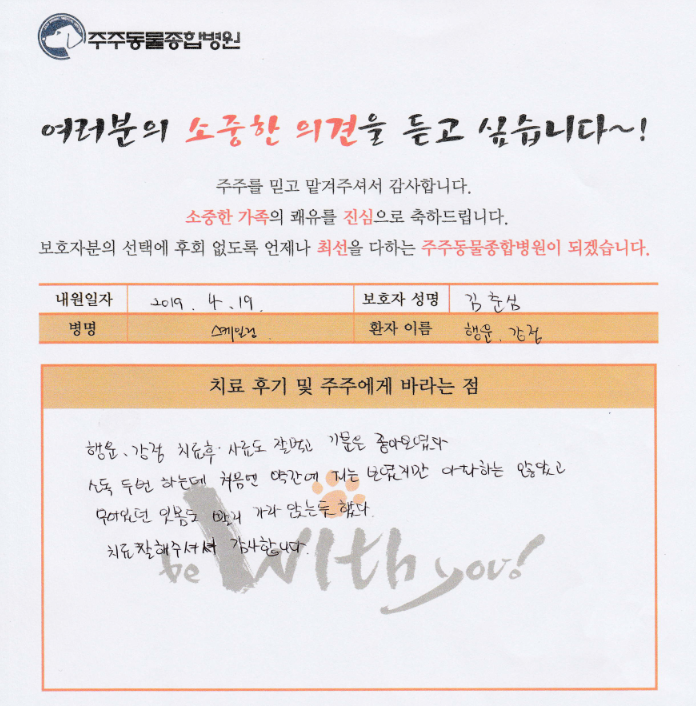 주주동물종합병원
여러분의 소중한 의견을 듣고 싶습니다~!
주주를 믿고 맡겨주셔서 감사합니다.
소중한 가족의 쾌유를 진심으로 축하드립니다.
보호자분의 선택에 후회 없도록 언제나 최선을 다하는 주주동물종합병원이 되겠습니다.
내원일자 2019. 4. 19. 보호자 성명 김춘심
병명 스케일링 환자 이름 행운, 강점
치료 후기 및 주주에게 바라는 점
행운, 강점 치료후 사료도 잘먹고 기분은 좋아보였다
소독 두번 하는데 처음엔 약간에 피는 보였지만 아파하는 않았고
잇몸도 빨리 가라 앉는듯 했다.
치료 잘해주셔서 감사합니다.
be With you!